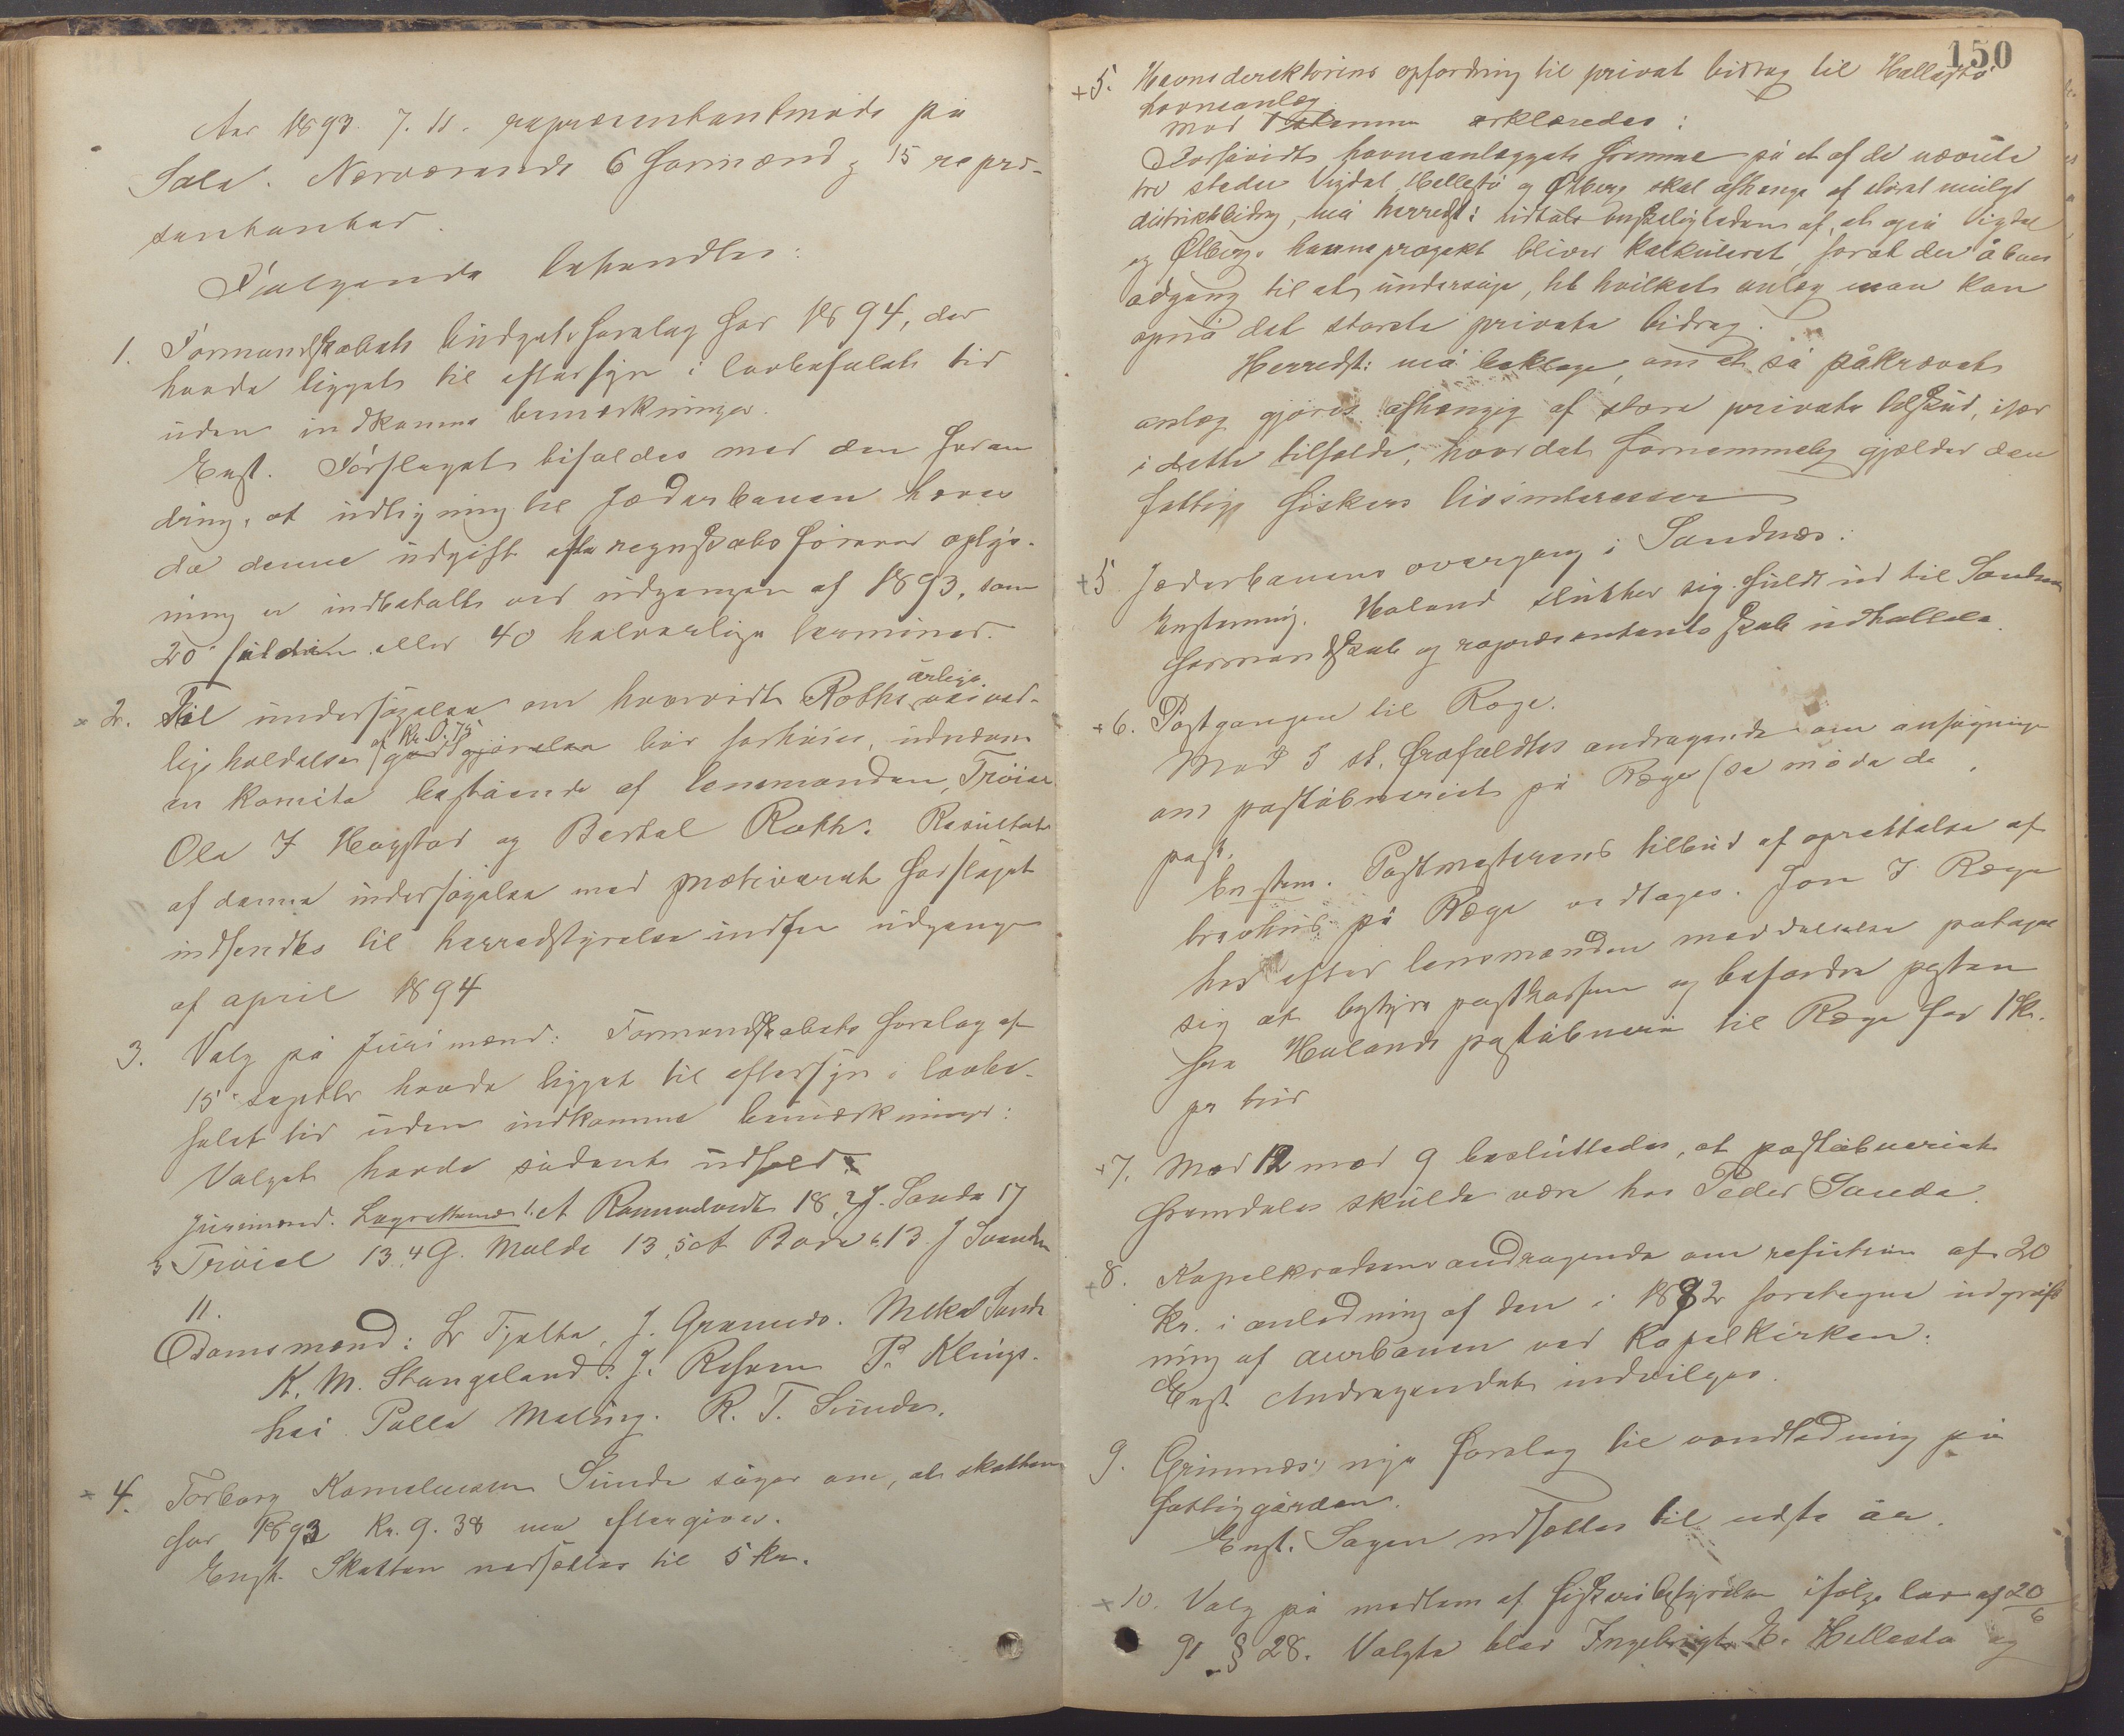 Aar 1893. 7. 11. repræsentantmøde på
Sola. Nærværende 6 formænd og 15 repræ-
sentanter.
Følgende behandles:
1. Formandskabets budgetsforslag for 1894, der
havde ligget til eftersyn i lovbefalet tid
uden indkomne bemærkninger.
Enst. Forslaget bifaldes med den foran
dring, at udligning til Jæderbanen hæves
da denne udgift efter regnskabsførerens oplys-
ning er indbetalt ved udgangen af 1893, som
20 fulde eller 40 halvaarlige terminer.
2. Til undersøgelse om hvorvidt Roths årlige veived-
ligeholdelse af Kr. 0.75 godtgjørelse bør forhøies, udnævnes
en komite bestående af lensmanden, Trøiel
Ola I Haugstad og Bertel Roth. Resultatet
af denne undersøgelse med motiveret forslag
indsendes til herredstyrelsen inden udgangen
af april 1894
3. Valg på Jurimænd: Formandskabets forslag af
15 septbr havde ligget til eftersyn i lovbe-
falet tid uden indkomne bemærkninger:
Valget havde sådant udfald:
Jurimænd. Lagrettemænd: 1. A Rommedvedt 18, 2 J. Sande 17
3 Trøiel 13, 4 G. Malde 13, 5 A Bore 6. 13. J Svende
11.
Domsmænd: L Tjelta, J. Grannes. Mikal Sande
K. M. Stangeland. J. Ræsvm P. Klings-
hei Palle Meling. R. T. Sunde.
4. Torborg Kornelius Sunde søger om, at skatten
for 1893 Kr. 9.38 må eftergives.
Enst. Skatten nedsættes til 5 kr.
150
+5. Havnedirektørens opfordring til privat bidrag til Hellestø
havneanlæg
mod 1 stemme erklæredes:
Forsåvidt havneanlæggets fremme på et af de nævnte
tre steder Vigdel Hellestø og Ølberg skal afhænge af størst muligt
distriktsbidrag, må herredst: udtale ønskeligheden af, at også Vigdel
og Ølbergs havneprojekt bliver kalkuleret, forat der åbnes
adgang til at undersøge, til hvilket anlæg man kan
opnå det største private bidrag.
Herredst: må beklage, om et så påkrævet
anlæg gjøres afhængig af store private tilskud, især
i dette tilfælde, hvor det fornemmelig gjælder den
fattige fiskers livsinteresser
+5 Jæderbanens overgang i Sandnæs:
Enstemmig. Haland slutter sig fuldt ud til Sandnæs
formandskab og repræsentantskab udtalelse.
+6. Postgangen til Ræge.
Mod 5 st. frafaldtes andragende om ansøgning
om poståbneriet på Ræge (se møde de
post.
Enstem. Postmesterens tilbud af oprettelse af
brevhus på Ræge vedtages. Jon I Ræge
har efter lensmanden meddelelse påtaget
sig at bestyre postkassen og befordre posten
fra Halands poståbneri til Ræge for 1 kr.
pr tur
+7. Med 12 mod 9 besluttedes, at poståbneriet
fremdeles skulde være hos Peder Sande.
+8. Kapelkredsens andragende om refusion af 20
kr. i anledning af den i 1892 foretagne udgraf-
ning af aurbanen ved Kapelkirken:
Enst. Andragendet indvilges.
9. Grannæs's nye forslag til vandledning på
fattiggården.
Enst. Sagen udsættes til næste år.
+10. Valg på medlem af fiskeribestyrelsen ifølge lov af 20/6
91 § 28. Valgte blev Ingebrigt E. Hellestø og